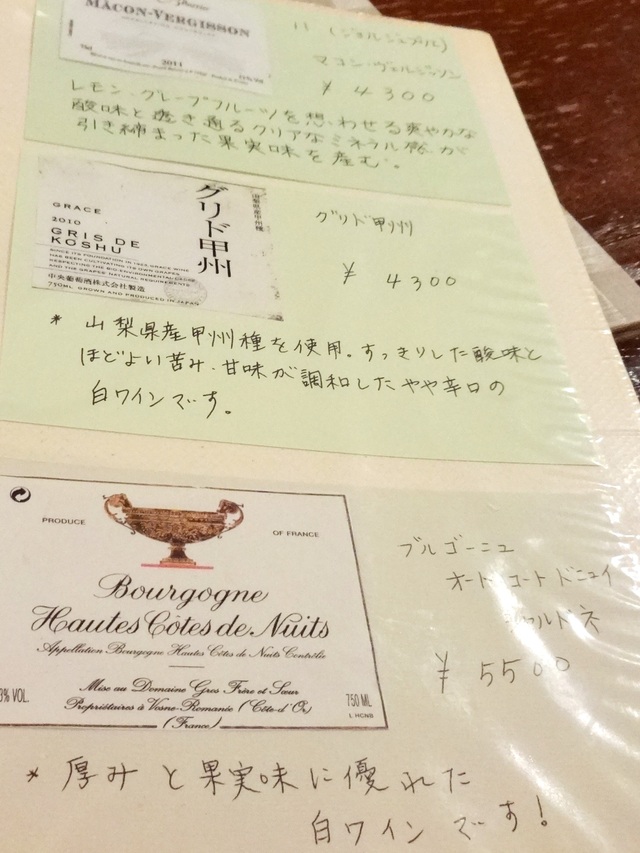 MÂCON-VERGISSON
2011
(ジョルジュブル)
マコン・ヴェルジッソン
¥4300
レモン・グレープフルーツを想わせる爽やかな
酸味と透き通るクリアなミネラル感が
引き締まった果実味を産む。
GRACE
2010
GRIS DE
KOSHU
SINCE ITS FOUNDATION IN 1923, GRACE WINE
HAS BEEN CULTIVATING ITS OWN GRAPES
RESPECTING THE BIO-ENVIRONMENTAL
AND THE GRAPES' NATURAL REQUIREMENTS
中央葡萄酒株式会社製造
750ML. GROWN AND PRODUCED IN JAPAN
グリド甲州
山梨県産甲州種
グリド甲州
¥ 4300
* 山梨県産甲州種を使用。すっきりした酸味と
ほどよい苦み、甘味が調和したやや辛口の
白ワインです。
PRODUCE
OF FRANCE
Bourgogne
Hautes Côtes de Nuits
Appellation Bourgogne Hautes Côtes de Nuits Contrôlée
3% VOL.
Mise au Domaine Gros Frère et Sœur
Propriétaires à Vosne-Romanée (Côte-d'Or)
(France)
750 ML
L HCNB
ブルゴーニュ
オード コート ドニュイ
シャルドネ
¥ 5500
* 厚みと果実味に優れた
白ワインです!